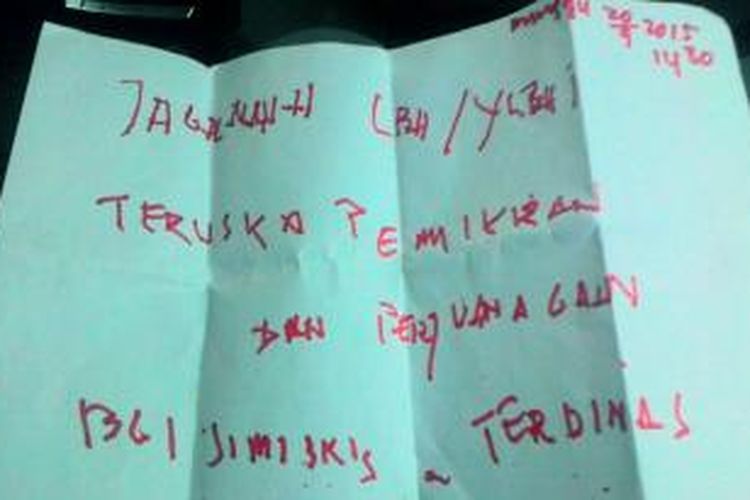 minggu 20/9 2015
1430
JAGALAH LBH/YLBHI
TERUSKA PEMIKIRAN
DAN PERJUANAGAAN
BGI SIMISKIS
TERDINAS